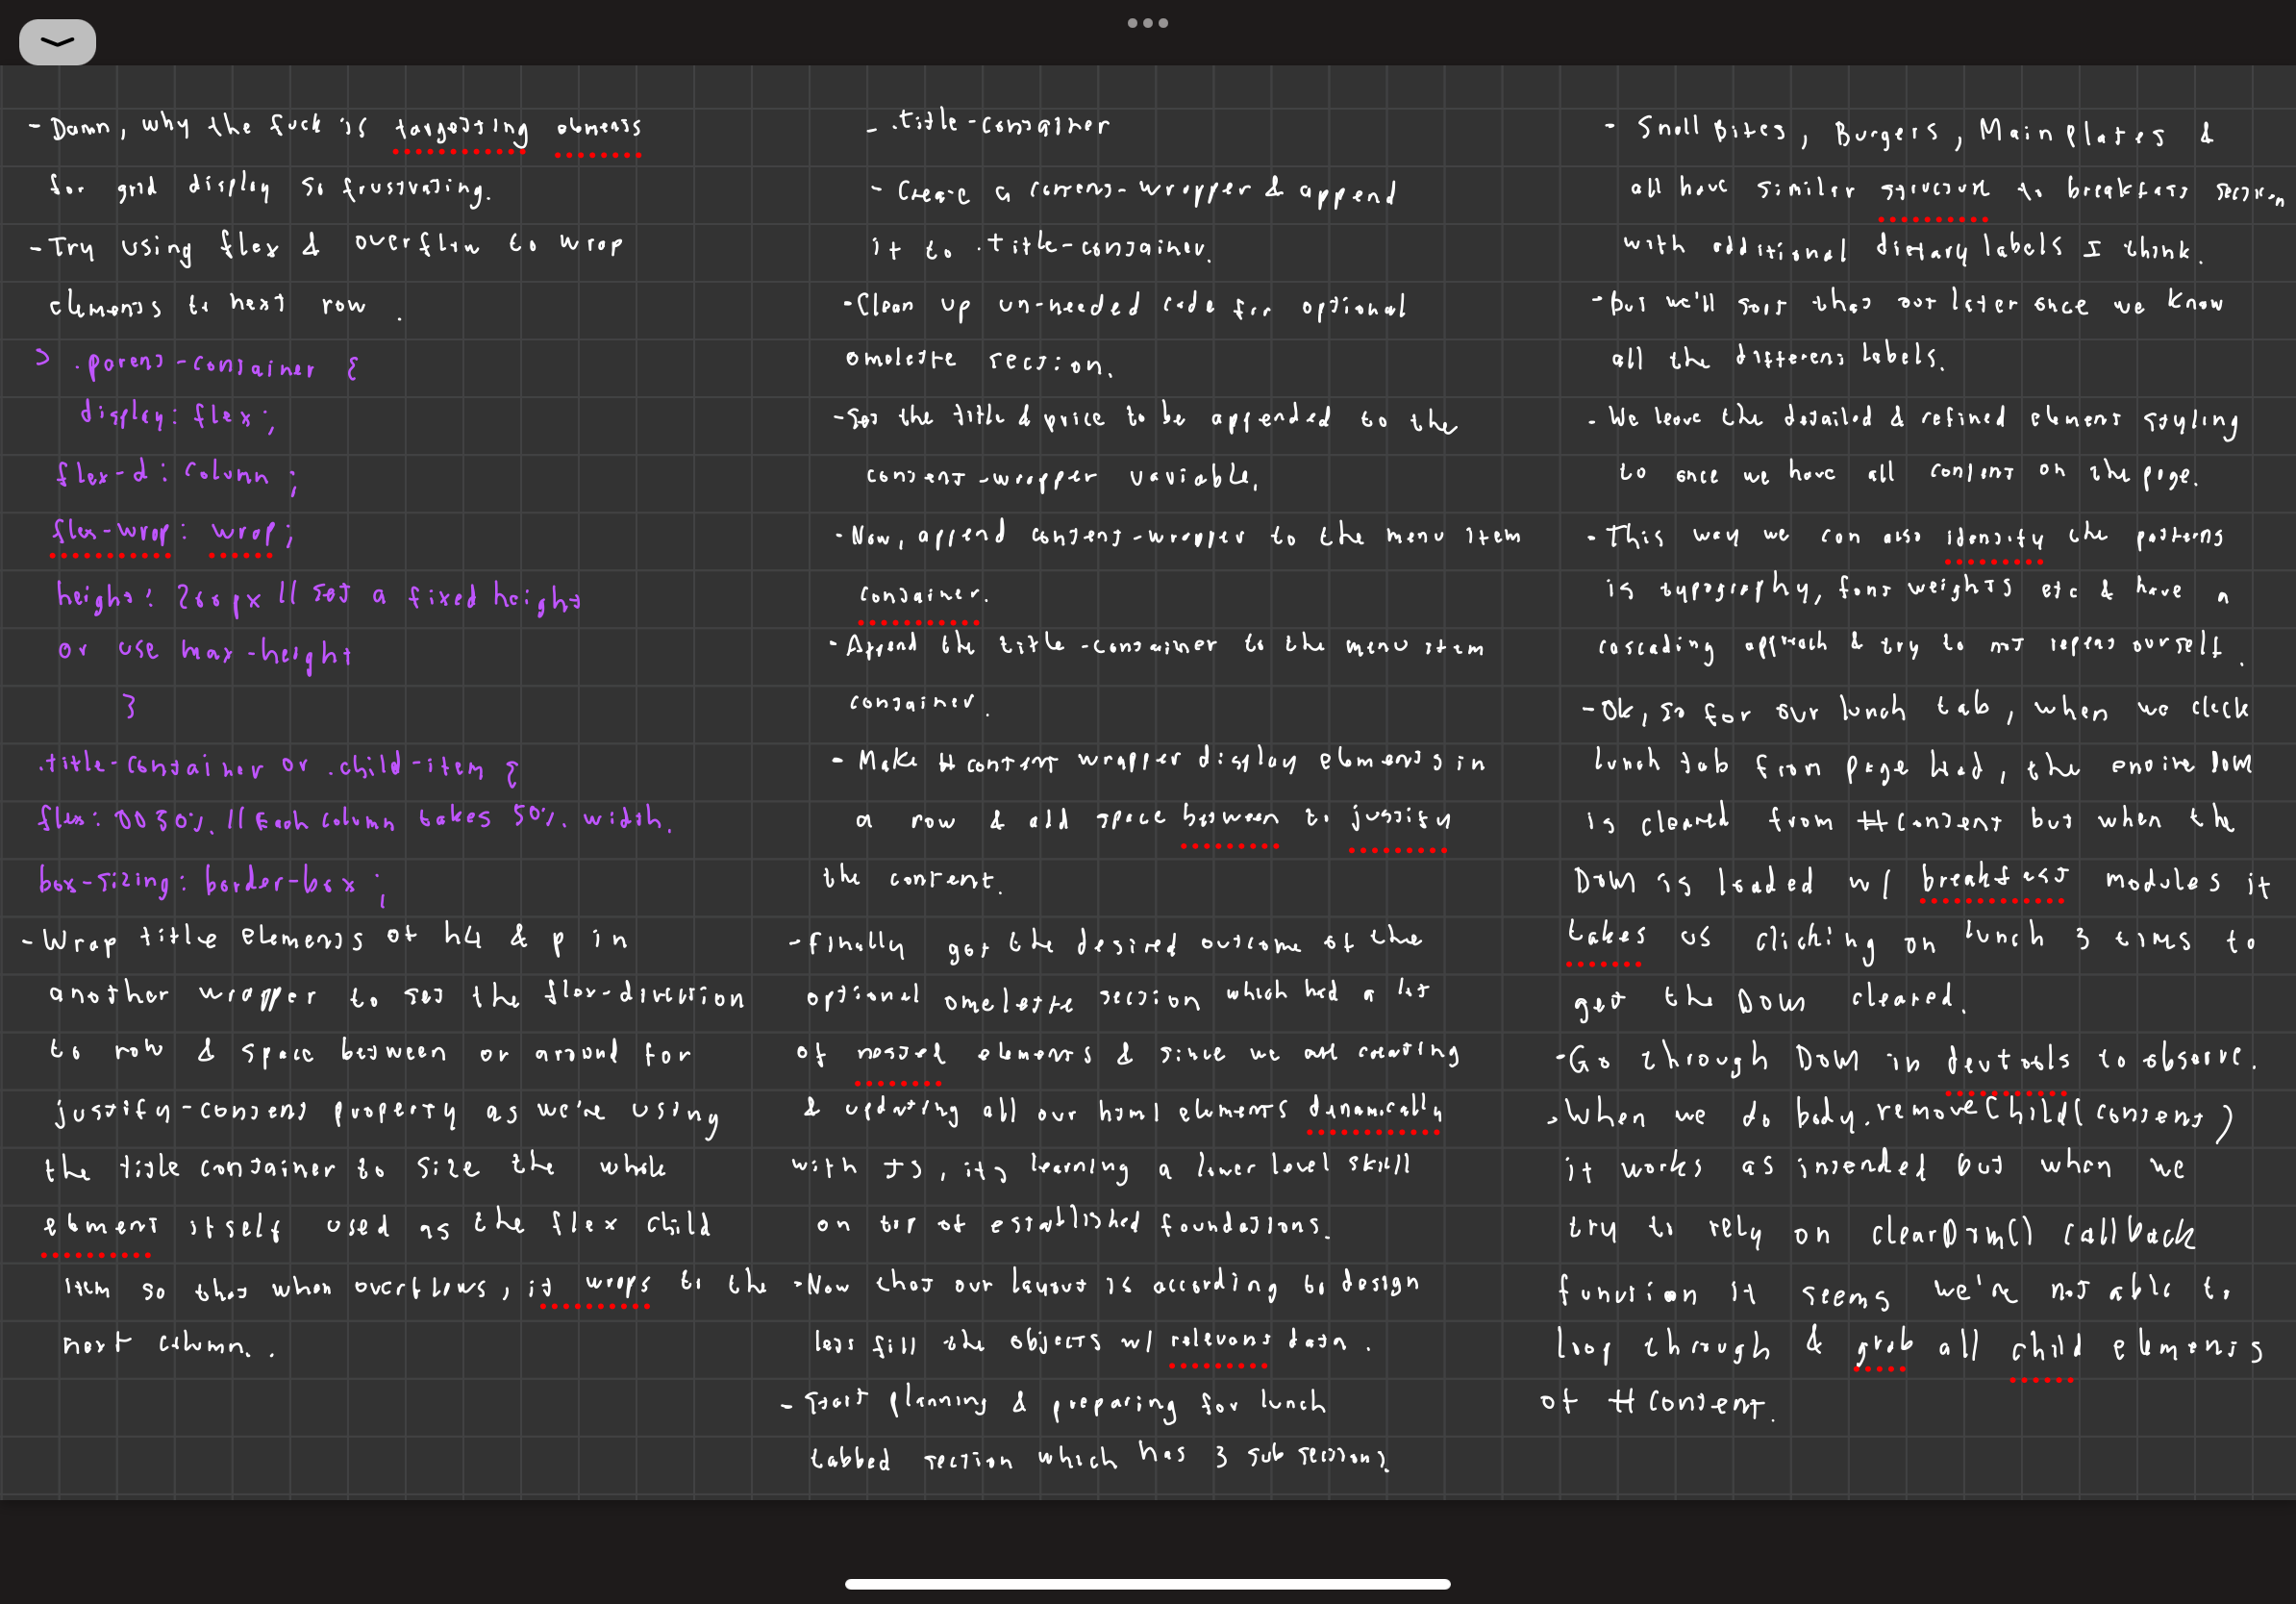 - Damn, why the fuck is targetting elements
for grid display so frustrating.
- Try using flex & overflow to wrap
elements to next row.
> .parent-container {
display: flex;
flex-d: column;
flex-wrap: wrap;
height: 200px // set a fixed height
or use max-height
}
.title-container or .child-item {
flex: 0 0 50%. // Each column takes 50%. width.
box-sizing: border-box;
- Wrap title elements of h4 & p in
another wrapper to set the flex-direction
to row & space between or around for
justify-content property as we're using
the title container to size the whole
element itself used as the flex child
item so that when overflows, it wraps to the
next column..
- .title-container
- Create a content-wrapper & append
it to .title-container.
- Clean up un-needed code for optional
omelette section.
- Set the title & price to be appended to the
content-wrapper variable.
- Now, append content-wrapper to the menu item
container.
- Append the title-container to the menu item
container.
- Make # content wrapper display elements in
a row & add space between to justify
the content.
- Finally got the desired outcome of the
optional omelette section which had a lot
of nested elements & since we are creating
& updating all our html elements dynamically
with JS, its learning a lower level skill
on top of established foundations.
- Now that our layout is according to design
lets fill the objects w/ relevant data.
- Start planning & preparing for lunch
tabbed section which has 3 sub sections.
- Small Bites, Burgers, Main plates &
all have similar structure to breakfast section
with additional dietary labels I think.
- But we'll sort that out later once we know
all the different labels.
- We leave the detailed & refined element styling
to once we have all content on the page.
- This way we can also identify the patterns
is typography, font weights etc & have a
cascading approach & try to not repeat ourself.
- Ok, so for our lunch tab, when we click
lunch tab from page load, the entire DOM
is cleared from #content but when the
DOM is loaded w/ breakfast modules it
takes us clicking on lunch 3 times to
get the DOM cleared.
- Go through DOM in devtools to observe.
> When we do body.removeChild(content)
it works as intended but when we
try to rely on clearDom() callback
function it seems we're not able to
loop through & grab all child elements
of #content.